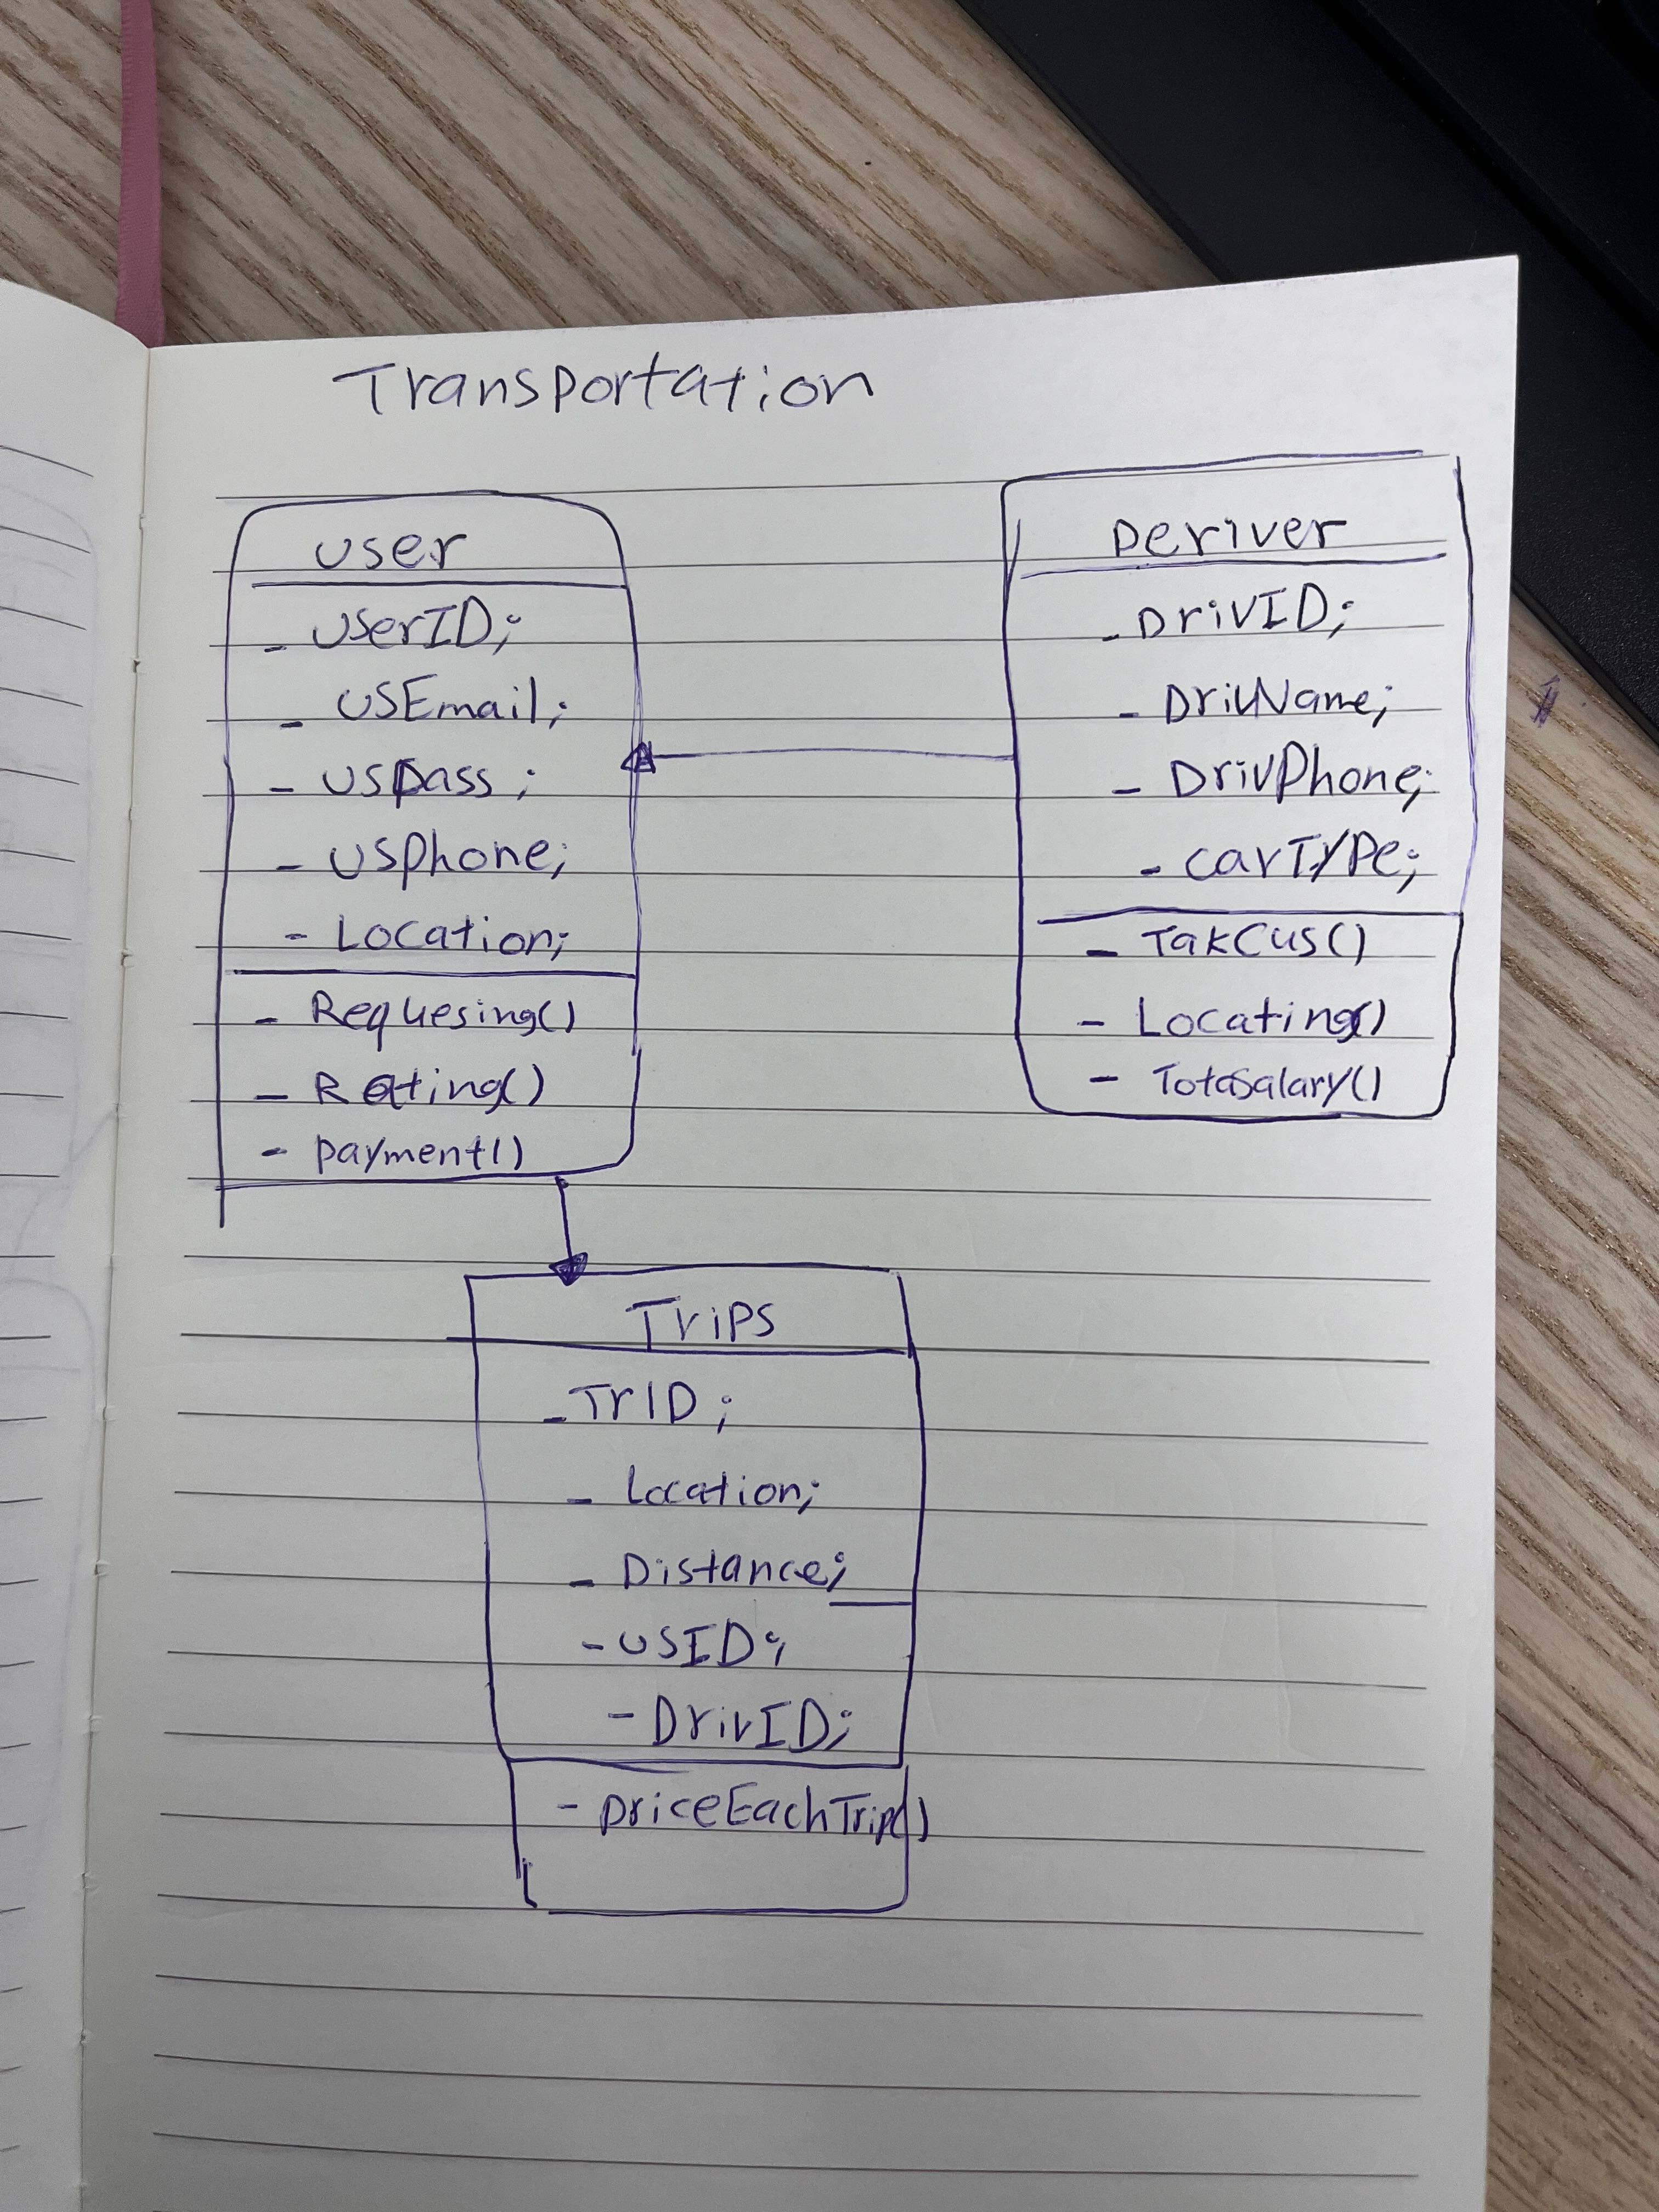 Transportation
User
- UserID;
- USEmail;
- USpass;
- USphone;
- Location;
- Requesing()
- Rating()
- payment()
Deriver
- DrivID;
- DrivName;
- DrivPhone;
- CarType;
- TakCus()
- Locating()
- Totasalary()
Trips
- TrID;
- Location;
- Distance;
- USID;
- DrivID;
- priceEachTrip()